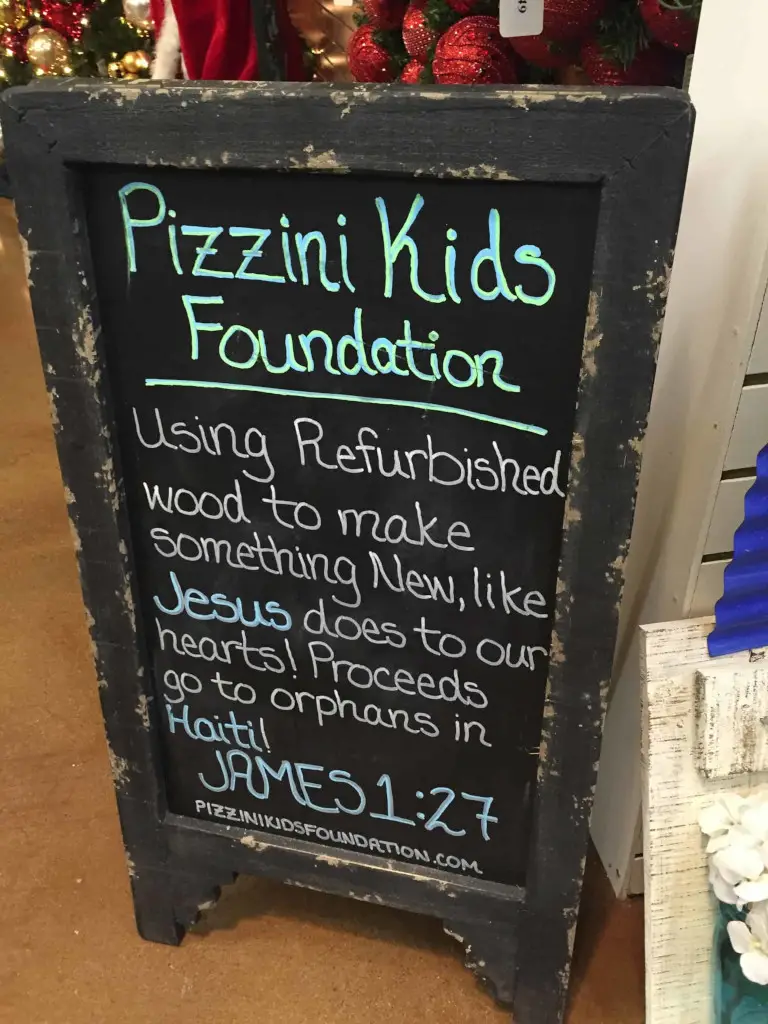 Pizzini Kids
Foundation
Using Refurbished
wood to make
something New, like
Jesus does to our
hearts! Proceeds
go to orphans in
Haiti!
JAMES 1:27
PIZZINIKIDSFOUNDATION.COM